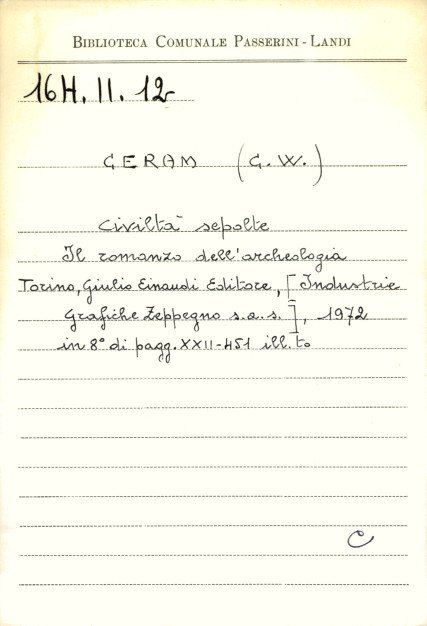 BIBLIOTECA COMUNALE PASSERINI - LANDI
16H. II. 12
CERAM (C. W.)
Civiltà sepolte
Il romanzo dell'archeologia
Torino, Giulio Einaudi Editore, [Industrie
Grafiche Zeppegno s.a.s.], 1972
in 8° di pagg. XXII-451 ill.to
C